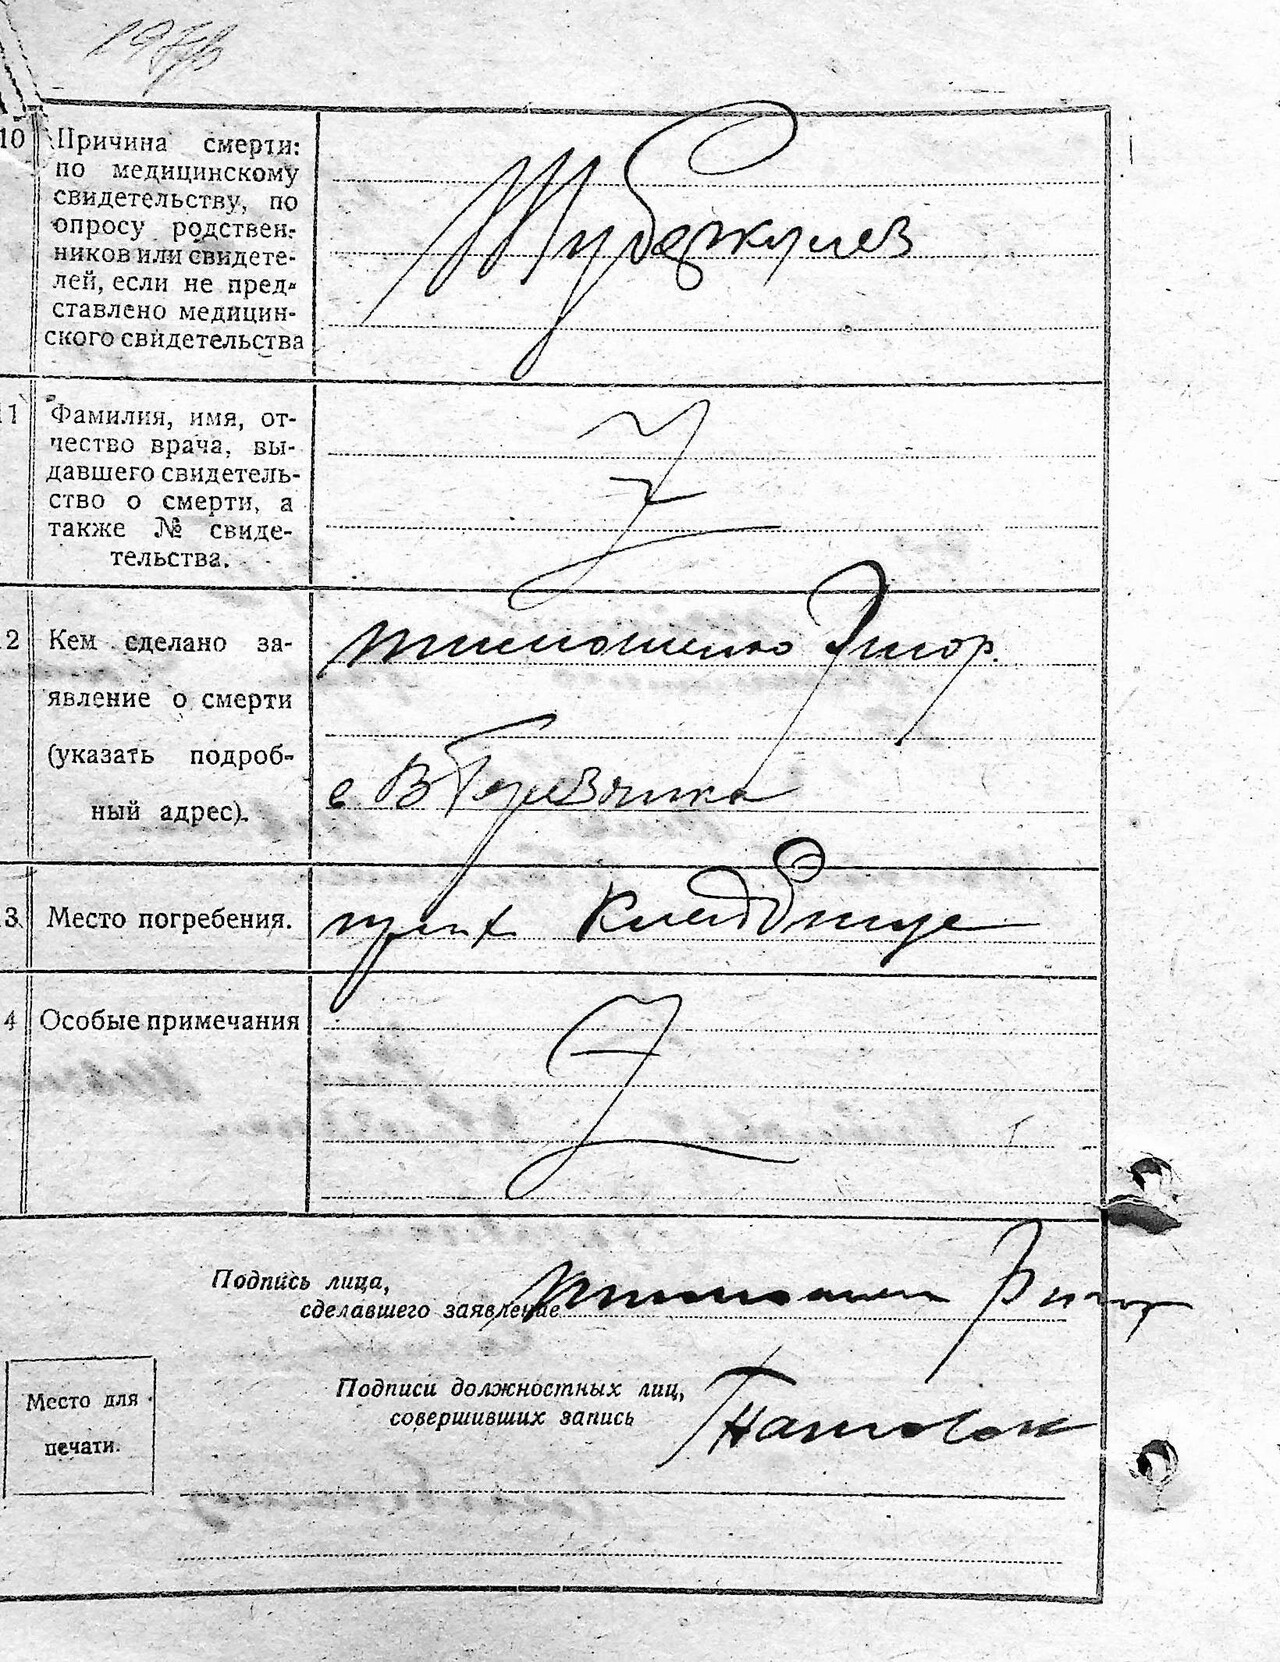 10 Причина смерти:
по медицинскому
свидетельству, по
опросу родствен-
ников или свидете-
лей, если не пред-
ставлено медицин-
ского свидетельства
Туберкулез
11 Фамилия, имя, от-
чество врача, вы-
давшего свидетель-
ство о смерти, а
также № свиде-
тельства.
Z
2 Кем сделано за-
явление о смерти
(указать подроб-
ный адрес).
тимошенко
с В
3 Место погребения.
Кладбище
4 Особые примечания
Z
Подпись лица,
сделавшего заявление
Подписи должностных лиц,
совершивших запись
Место для
печати.